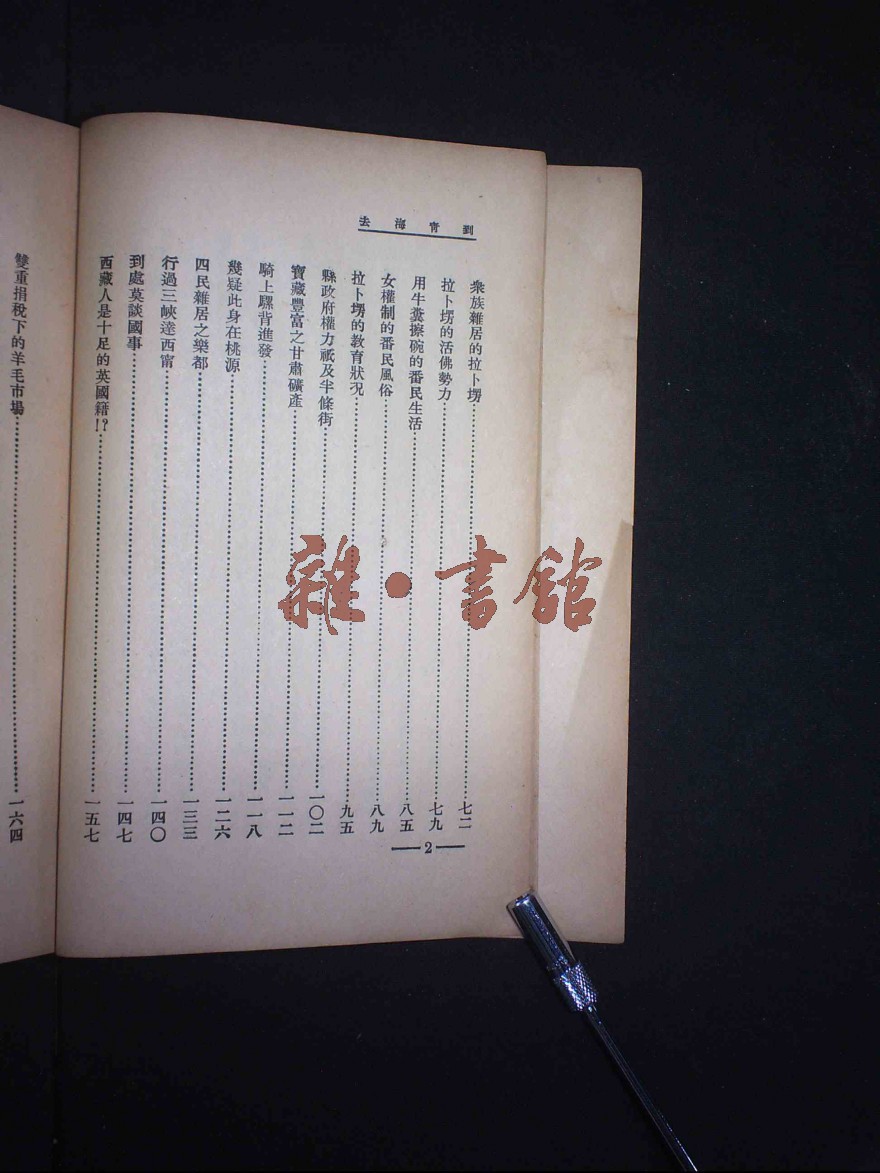 到青海去
衆族雜居的拉卜塄……七二
拉卜塄的活佛勢力……七九
用牛糞擦碗的番民生活……八五
女權制的番民風俗……八九
拉卜塄的教育狀況……九五
縣政府權力祇及半條街……一〇二
寶藏豐富之甘肅礦產……一一二
騎上騾背進發……一一八
幾疑此身在桃源……一二六
四民雜居之樂都……一三三
行過三峽達西甯……一四〇
到處莫談國事……一四七
西藏人是十足的英國籍!?……一五七
— 2 —
雙重捐稅下的羊毛市場……一六四
雜·書館